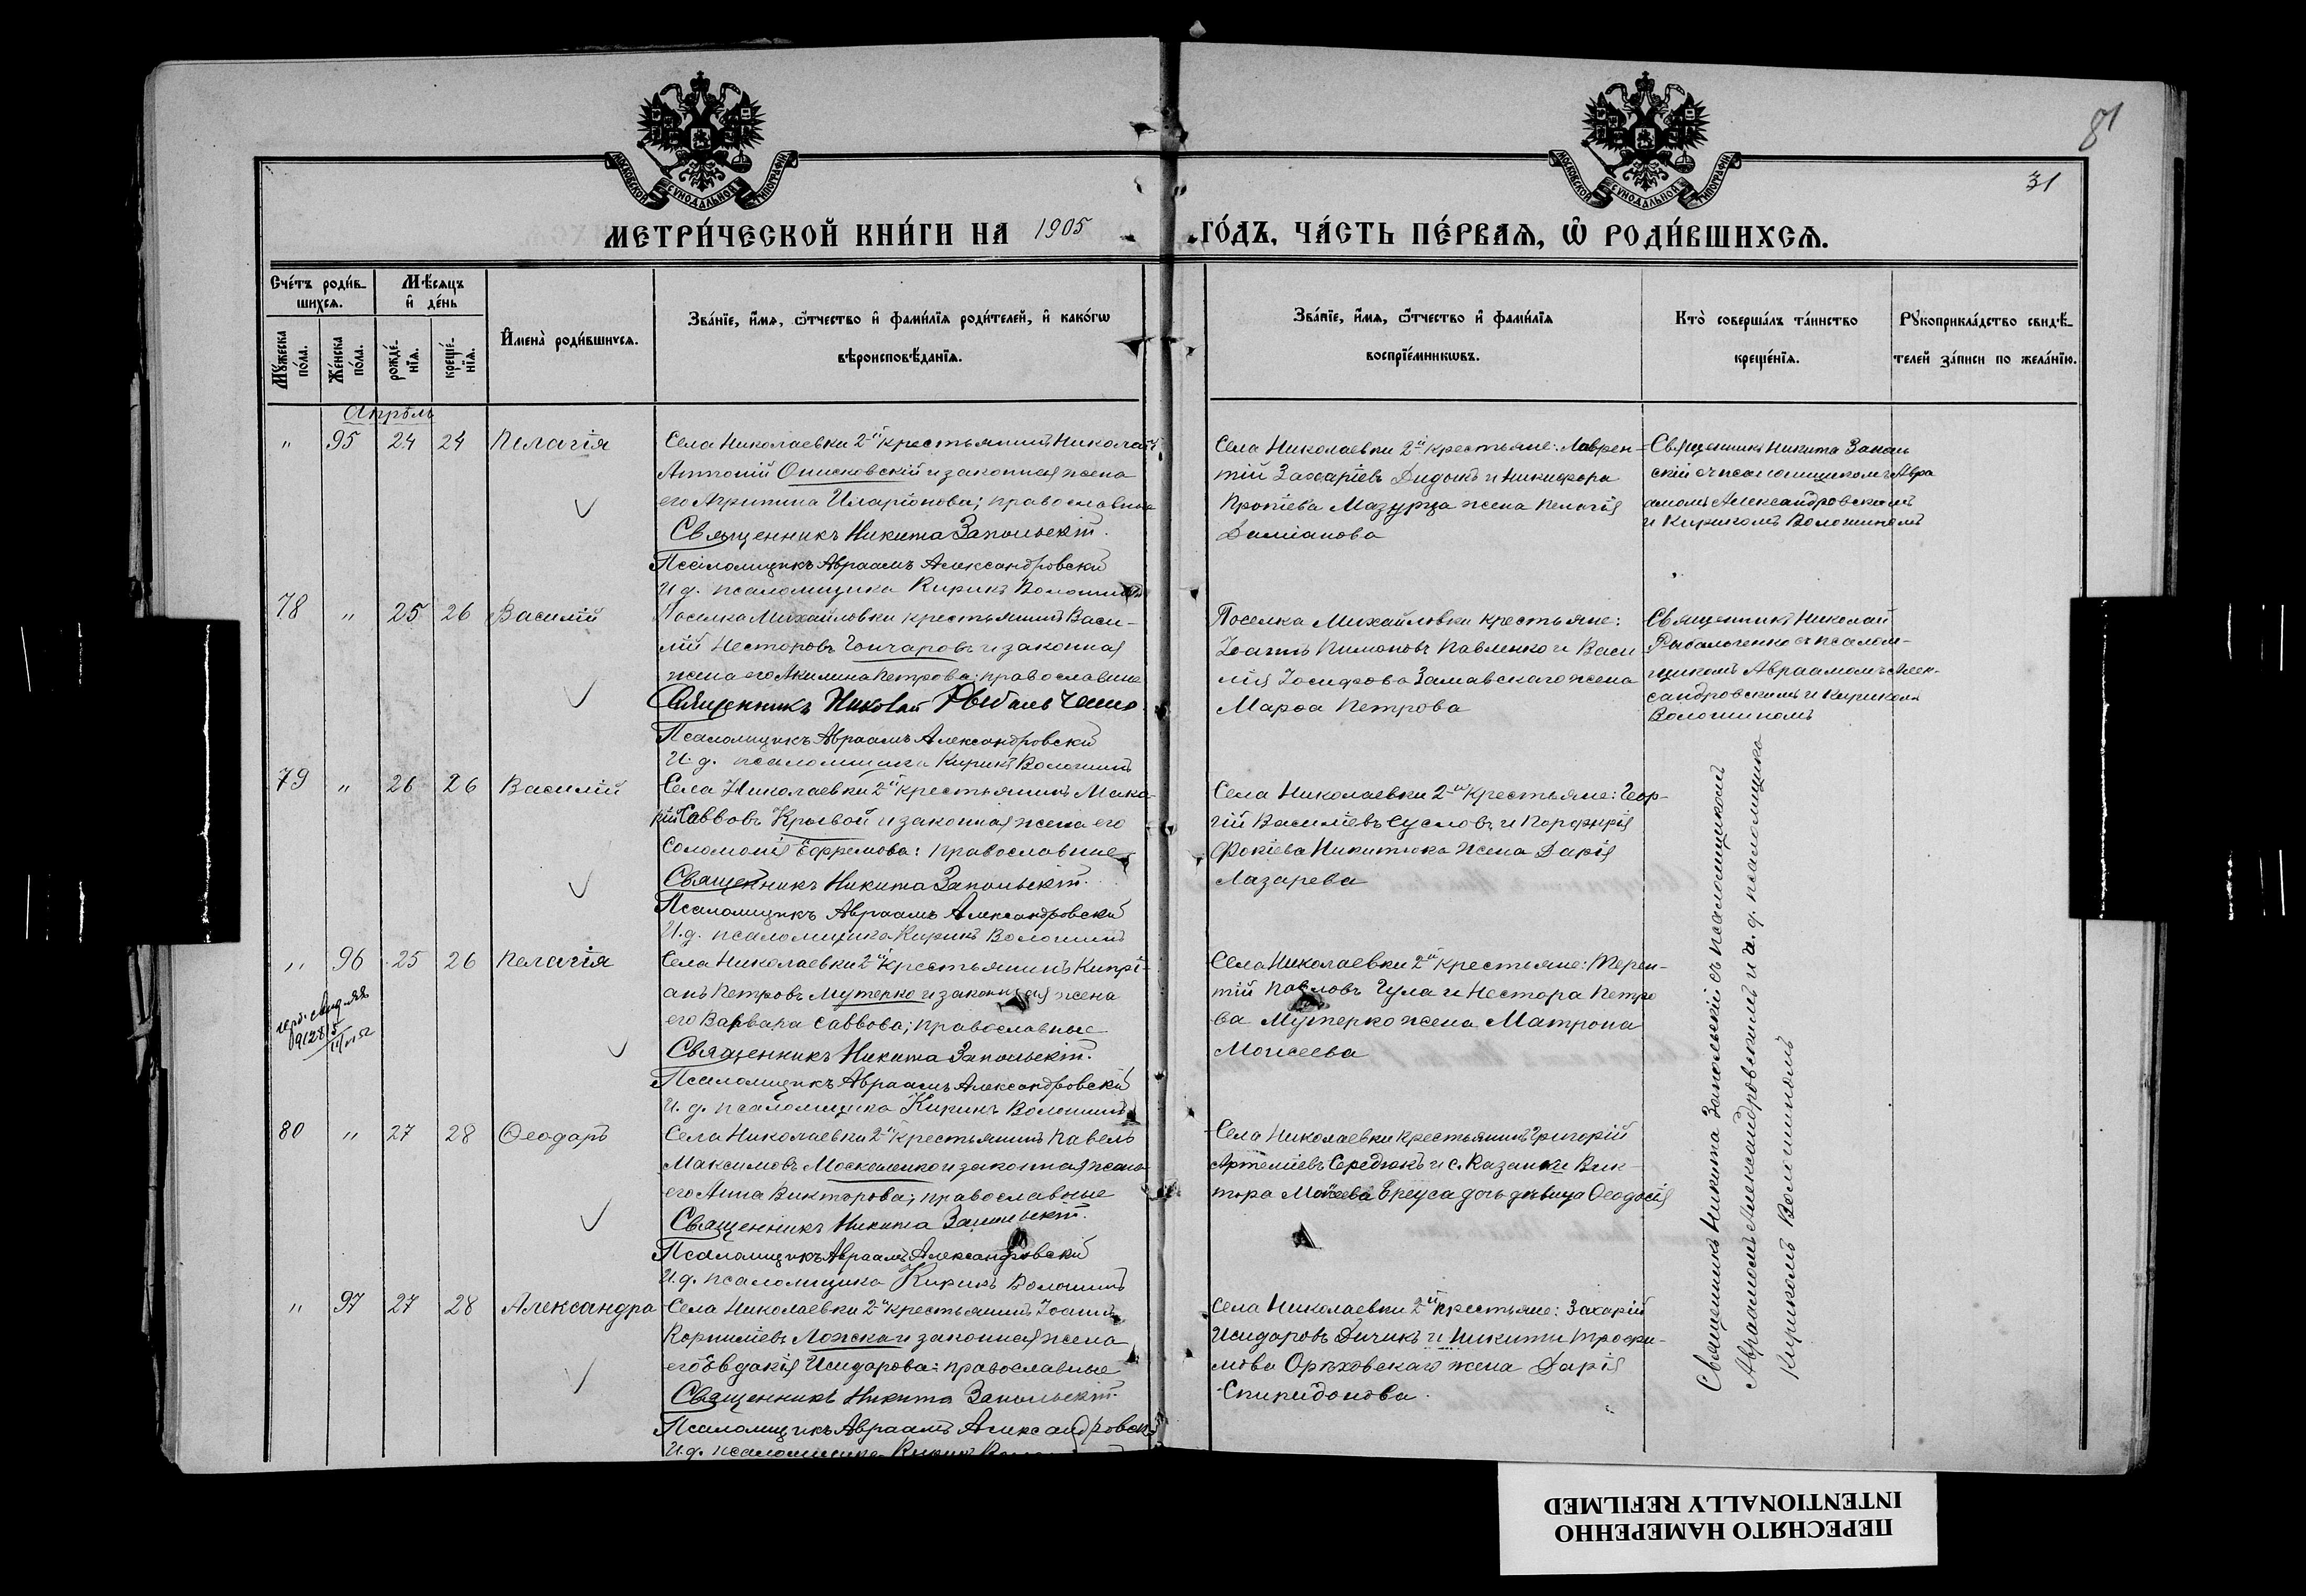 81
31
МОСКОВСКОЙ СѴНОДАЛЬНОЙ ТИПОГРАФІИ
МОСКОВСКОЙ СѴНОДАЛЬНОЙ ТИПОГРАФІИ
МЕТРИ́ЧЕСКОЙ КНИ́ГИ НА 1905 ГО́ДЪ, ЧА́СТЬ ПЕ́РВАѦ, Ѡ РОДИ́ВШИХСѦ.
Сче́тъ роди́в-
шихсѧ.
Мѣ́сяцъ
и де́нь
Мꙋ́жеска по́ла.
Же́нска по́ла.
рожде́-
нїѧ.
креще́-
нїѧ.
Имена̀ роди́вшихсѧ.
Зва́нїе, и́мѧ, ѻ́тчество и фами́лїѧ роди́телей, и како́гѡ
вѣроисповѣ́данїѧ.
Зва́нїе, и́мѧ, ѻ́тчество и фами́лїѧ
воспрїе́мникѡвъ.
Кто̀ соверша́лъ та́инство
креще́нїѧ.
Рꙋкоприкла́дство свидѣ́-
телей за́писи по жела́нїю.
Апрѣль
" 95 24 24 Пелагія
Села Николаевки 2-й крестьянинъ Николай
Антоній Онисковскій и законная жена
его Агрипина Иларіонова; православные
Священникъ Никита Запольскій.
Псаломщикъ Авраамъ Александровскій
И.д. псаломщика Кирикъ Волошинъ
Села Николаевки 2-й крестьяне: Лаврен-
тій Захаріевъ Дидокъ и Никифора
Прокіева Мазурца жена Пелагія
Даміанова
Священникъ Никита Заполь
скій съ псаломщикомъ Авра
амомъ Александровскимъ
и Кирикомъ Волошинымъ
78 " 25 26 Василій
Поселка Михайловки крестьянинъ Васи-
лій Несторовъ Гончаровъ и законная
жена его Акилина Петрова; православные
Священникъ Николай Рыбальченко
Псаломщикъ Авраамъ Александровскій
И.д. псаломщика Кирикъ Волошинъ
Поселка Михайловки крестьяне:
Іоаннъ Пимоновъ Павленко и Васи
лія Іосифова Замавскаго жена
Марѳа Петрова
Священникъ Николай
Рыбальченко съ псалом-
щикомъ Авраамомъ Алек-
сандровскимъ и Кирикомъ
Волошиномъ
79 " 26 26 Василій
Села Николаевки 2-й крестьянинъ Мака-
рій Саввовъ Кривой и законная жена его
Соломонія Ефремова: православные
Священникъ Никита Запольскій.
Псаломщикъ Авраамъ Александровскій
И.д. псаломщика Кирикъ Волошинъ
Села Николаевки 2-й крестьяне: Геор-
гій Василіевъ Сусловъ и Порфирія
Фокіева Никитюка жена Дарія
Лазарева
" 96 25 26 Пелагія
Села Николаевки 2-й крестьянинъ Кипрі-
анъ Петровъ Мутерко и законная жена
его Варвара Саввова; православные
Священникъ Никита Запольскій.
Псаломщикъ Авраамъ Александровскій
И.д. псаломщика Кирикъ Волошинъ
Села Николаевки 2-й крестьяне: Терен-
тій Павловъ Гула и Нестора Петро
ва Мутерко жена Матрона
Моисеева
80 " 27 28 Ѳеодоръ
Села Николаевки 2-й крестьянинъ Павелъ
Максимовъ Москаленко и законная жена
его Анна Викторова; православные
Священникъ Никита Запольскій.
Псаломщикъ Авраамъ Александровскій
И.д. псаломщика Кирикъ Волошинъ
Села Николаевки крестьянинъ Григорій
Артеміевъ Середюкъ и с. Казанки Вик-
тора Моисеева Бреуса дочь дѣвица Ѳеодосія
" 97 27 28 Александра
Села Николаевки 2-й крестьянинъ Іоаннъ
Корниліевъ Ложка и законная жена
его Евдакія Исидорова: православные
Священникъ Никита Запольскій.
Псаломщикъ Авраамъ Александровскій
И.д. псаломщика Кирикъ
Села Николаевки 2-й крестьяне: Захарій
Исидоровъ Дичикъ и Никиты Трофи-
мова Орѣховскаго жена Дарія
Спиридонова.
Священникъ Никита Запольскій съ псаломщикомъ
Авраамомъ Александровскимъ и и.д. псаломщика
Кирикомъ Волошиномъ
ПЕРЕСНЯТО НАМЕРЕННО
INTENTIONALLY REFILMED